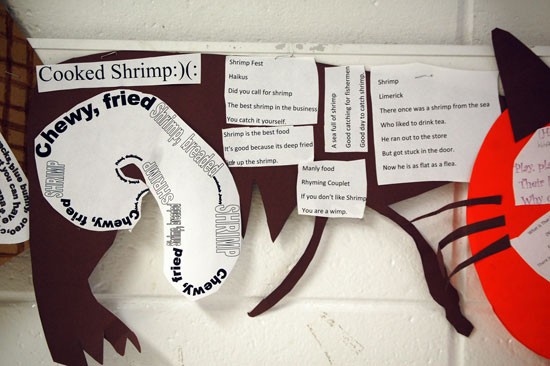 Cooked Shrimp:)(:
Chewy, fried
Shrimp, breaded
SHRIMP
Chewy, fried
SHRIMP
SHRIMP
Chewy, fried
Shrimp Fest
Haikus
Did you call for shrimp
The best shrimp in the business
You catch it yourself.
Shrimp is the best food
It's good because its deep fried
up the shrimp.
A sea full of shrimp
Good catching for fishermen
Good day to catch shrimp.
Manly food
Rhyming Couplet
If you don't like Shrimp
You are a wimp.
Shrimp
Limerick
There once was a shrimp from the sea
Who liked to drink tea.
He ran out to the store
But got stuck in the door.
Now he is as flat as a flea.
you can have
Play, pl
Their
Why